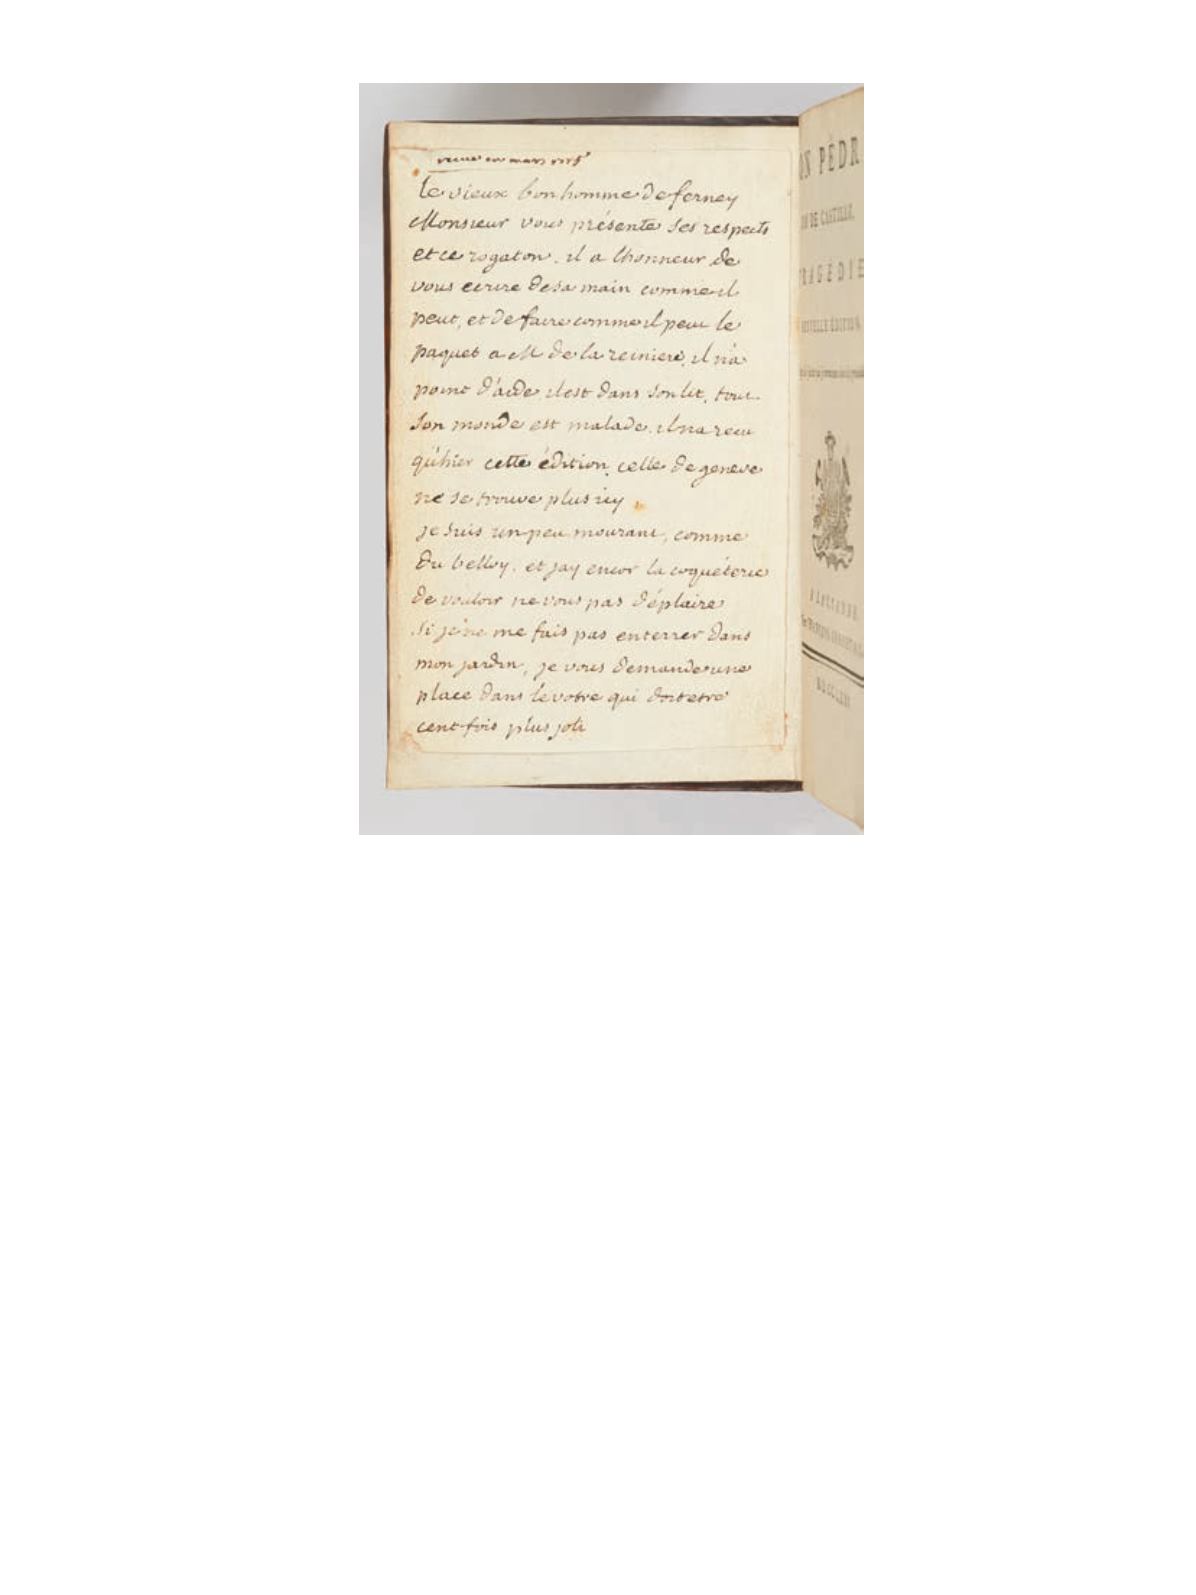 recue en mars 1775
Le vieux bon homme de ferney
Monsieur vous présente ses respects
et ce rogaton. il a lhonneur de
vous ecrire de sa main comme il
peut, et de faire comme il peut le
paquet a M de la reiniere, il n'a
point d'aide, il est dans son lit, tout
son monde est malade. il na recu
qu'hier cette édition. celle de geneve
ne se trouve plus icy
je suis un peu mourant, comme
Du belloy. et jay encor la coquéterie
de vouloir ne vous pas déplaire
Si je ne me fais pas enterrer dans
mon jardin, je vous demande une
place dans le votre qui doit etre
cent fois plus joli
ON PÉDR
DE CASTILLE,
RAGÉDIE
NOUVELLE ÉDITION